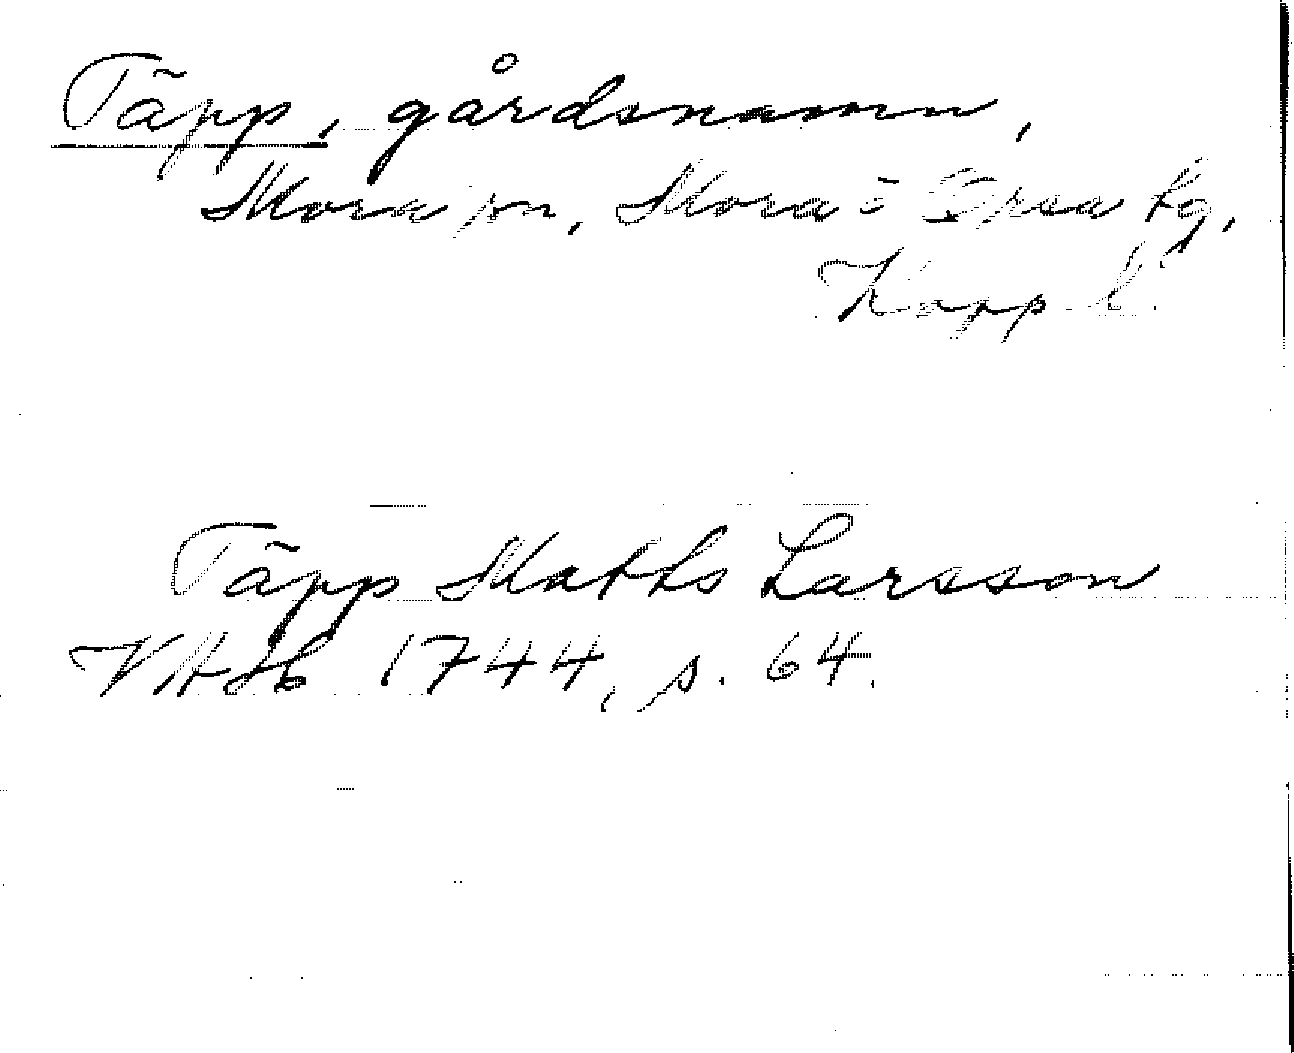 Täpp, gårdsnamn,
Mora sn, Mora o Orsa tg,
Kopp l.
Täpp Matts Larsson
1744, s. 64.